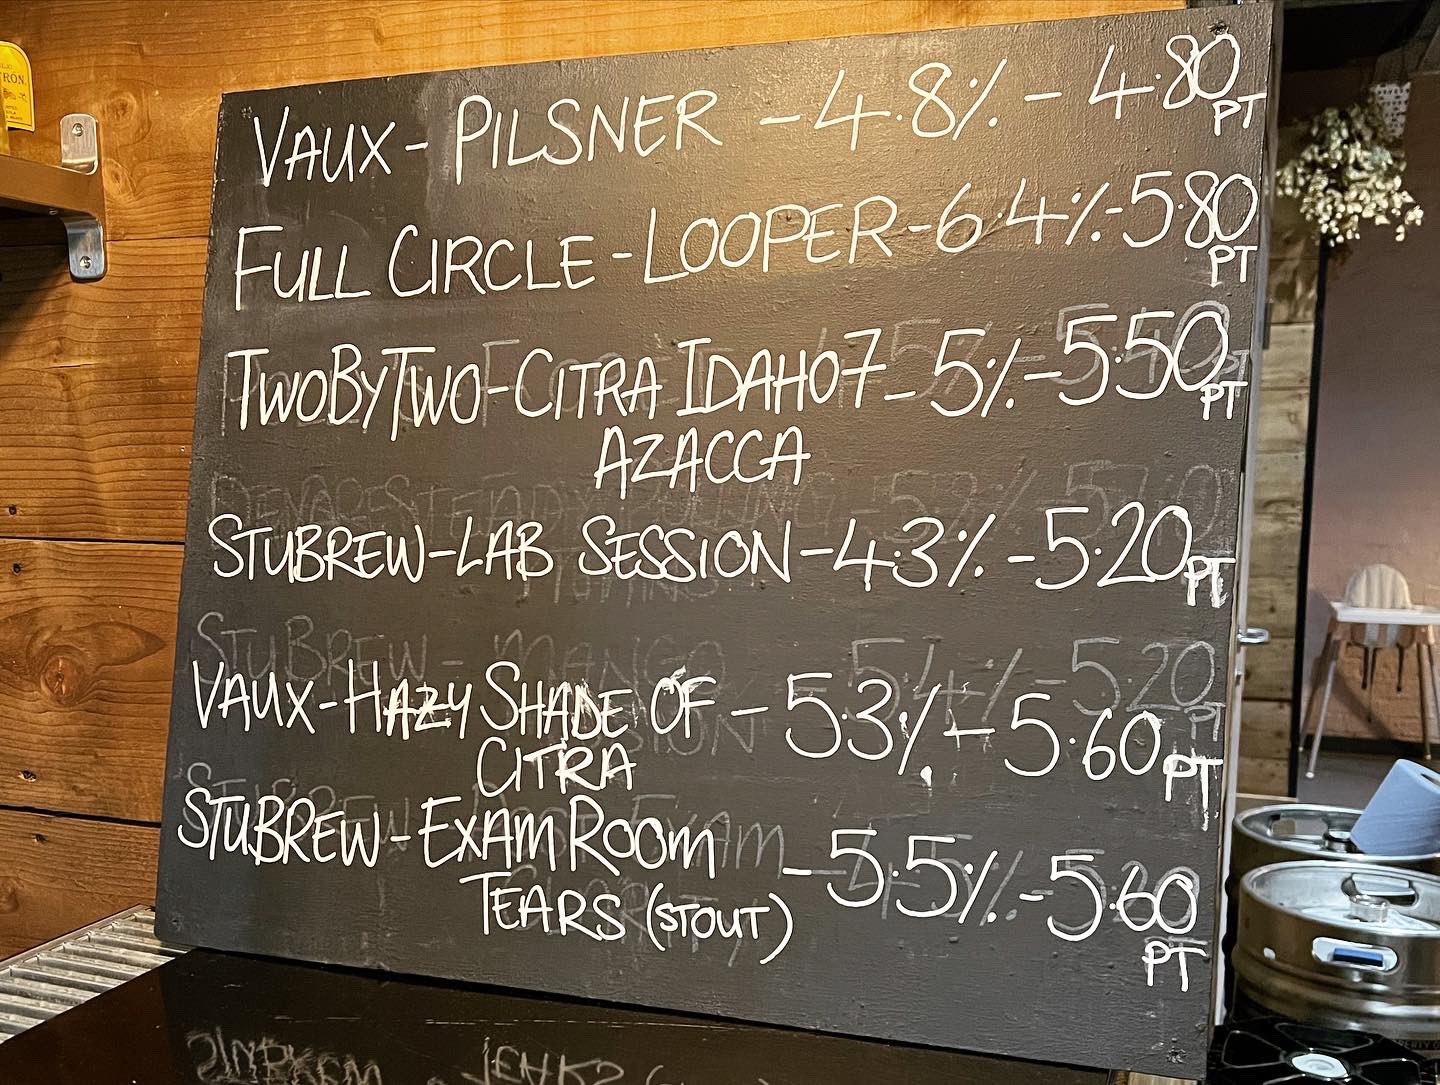 VAUX - PILSNER - 4.8% - 4.80 PT
FULL CIRCLE - LOOPER - 6.4% - 5.80 PT
TWOBYTWO - CITRA IDAHO 7 - 5% - 5.50 PT
AZACCA
STUBREW - LAB SESSION - 4.3% - 5.20 PT
STUBREW - MANGO 5.20 PT
VAUX - HAZY SHADE OF - 5.3% - 5.60 PT
CITRA
STUBREW - EXAM ROOM - 5.5% - 5.60 PT
TEARS (STOUT)